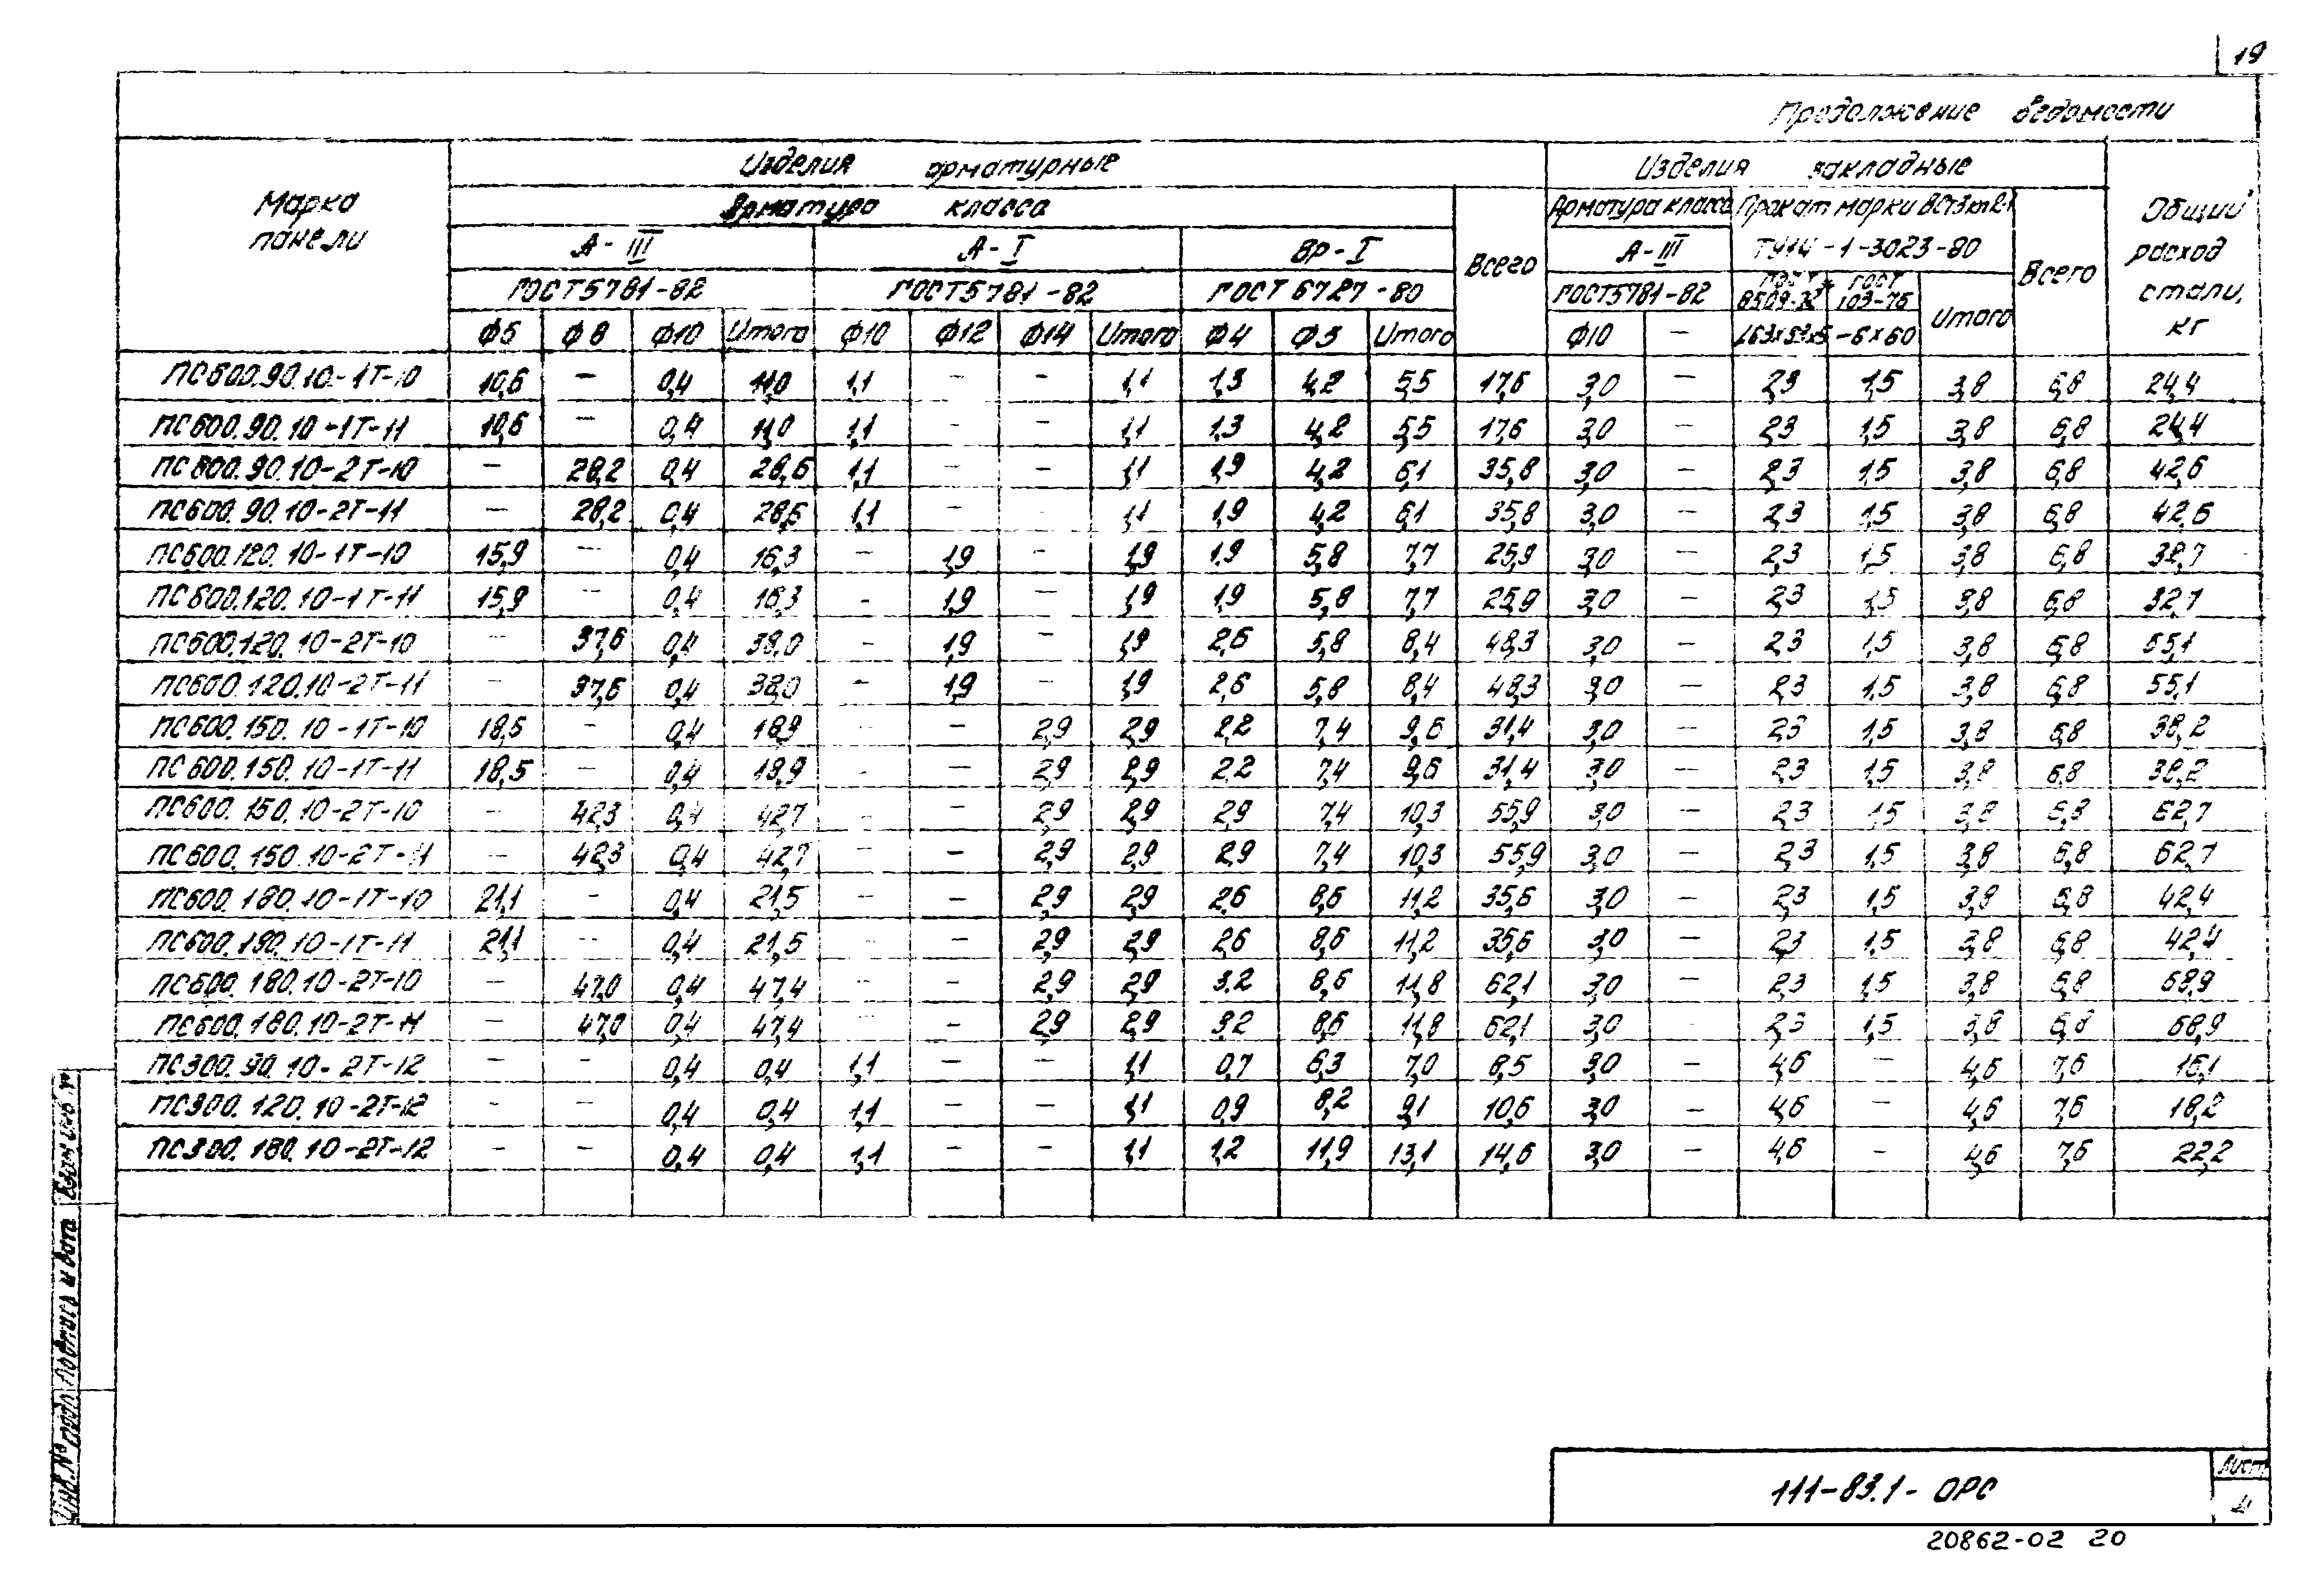 19
Продолжение ведомости
Марка панели
Изделия арматурные
Изделия закладные
Общий расход стали, кг
Арматура класса
Всего
Арматура класса
Прокат марки ВСт3кп2-1
Всего
А-III
А-I
Вр-I
А-III
ТУ14-1-3023-80
ГОСТ5781-82
ГОСТ5781-82
ГОСТ 6727-80
ГОСТ5781-82
ГОСТ 8509-72*
ГОСТ 103-76
Итого
Ф6 Ф8 Ф10 Итого Ф10 Ф12 Ф14 Итого Ф4 Ф5 Итого Ф10 — L63х63х5 -6х60
ПС600.90.10-1Т-10 10,6 — 0,4 11,0 1,1 — — 1,1 1,3 4,2 5,5 17,6 3,0 — 2,3 1,5 3,8 6,8 24,4
ПС600.90.10-1Т-11 10,6 — 0,4 11,0 1,1 — — 1,1 1,3 4,2 5,5 17,6 3,0 — 2,3 1,5 3,8 6,8 24,4
ПС600.90.10-2Т-10 — 28,2 0,4 28,6 1,1 — — 1,1 1,9 4,2 6,1 35,8 3,0 — 2,3 1,5 3,8 6,8 42,6
ПС600.90.10-2Т-11 — 28,2 0,4 28,6 1,1 — — 1,1 1,9 4,2 6,1 35,8 3,0 — 2,3 1,5 3,8 6,8 42,6
ПС600.120.10-1Т-10 15,9 — 0,4 16,3 — 1,9 — 1,9 1,9 5,8 7,7 25,9 3,0 — 2,3 1,5 3,8 6,8 32,7
ПС600.120.10-1Т-11 15,9 — 0,4 16,3 — 1,9 — 1,9 1,9 5,8 7,7 25,9 3,0 — 2,3 1,5 3,8 6,8 32,7
ПС600.120.10-2Т-10 — 37,6 0,4 38,0 — 1,9 — 1,9 2,6 5,8 8,4 48,3 3,0 — 2,3 1,5 3,8 6,8 55,1
ПС600.120.10-2Т-11 — 37,6 0,4 38,0 — 1,9 — 1,9 2,6 5,8 8,4 48,3 3,0 — 2,3 1,5 3,8 6,8 55,1
ПС600.150.10-1Т-10 18,5 — 0,4 18,9 — — 2,9 2,9 2,2 7,4 9,6 31,4 3,0 — 2,3 1,5 3,8 6,8 38,2
ПС600.150.10-1Т-11 18,5 — 0,4 18,9 — — 2,9 2,9 2,2 7,4 9,6 31,4 3,0 — 2,3 1,5 3,8 6,8 38,2
ПС600.150.10-2Т-10 — 42,3 0,4 42,7 — — 2,9 2,9 2,9 7,4 10,3 55,9 3,0 — 2,3 1,5 3,8 6,8 62,7
ПС600.150.10-2Т-11 — 42,3 0,4 42,7 — — 2,9 2,9 2,9 7,4 10,3 55,9 3,0 — 2,3 1,5 3,8 6,8 62,7
ПС600.180.10-1Т-10 21,1 — 0,4 21,5 — — 2,9 2,9 2,6 8,6 11,2 35,6 3,0 — 2,3 1,5 3,8 6,8 42,4
ПС600.180.10-1Т-11 21,1 — 0,4 21,5 — — 2,9 2,9 2,6 8,6 11,2 35,6 3,0 — 2,3 1,5 3,8 6,8 42,4
ПС600.180.10-2Т-10 — 47,0 0,4 47,4 — — 2,9 2,9 3,2 8,6 11,8 62,1 3,0 — 2,3 1,5 3,8 6,8 68,9
ПС600.180.10-2Т-11 — 47,0 0,4 47,4 — — 2,9 2,9 3,2 8,6 11,8 62,1 3,0 — 2,3 1,5 3,8 6,8 68,9
ПС300.90.10-2Т-12 — — 0,4 0,4 1,1 — — 1,1 0,7 6,3 7,0 8,5 3,0 — 4,6 — 4,6 7,6 16,1
ПС300.120.10-2Т-12 — — 0,4 0,4 1,1 — — 1,1 0,9 8,2 9,1 10,6 3,0 — 4,6 — 4,6 7,6 18,2
ПС300.180.10-2Т-12 — — 0,4 0,4 1,1 — — 1,1 1,2 11,9 13,1 14,6 3,0 — 4,6 — 4,6 7,6 22,2
Инв.№ подл Подпись и дата Взам инв.№
111-83.1-ОРС
Лист
4
20862-02 20